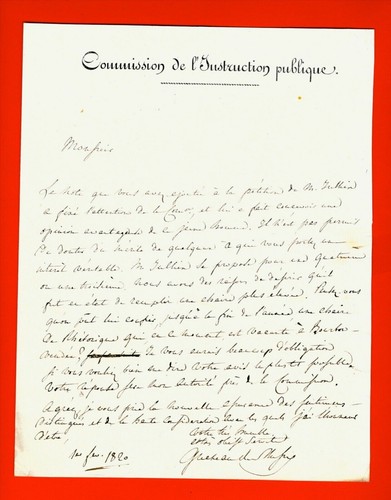 Commission de l'Instruction publique.
Monsieur
La Note que vous avez ajoutée à la pétition de M. Jullien
a fixé l'attention de la Com.on et lui a fait concevoir une
opinion avantageuse de ce jeune homme. Il n'est pas permis
de douter du mérite de quelqu'un à qui vous portez un
intérêt véritable. M. Jullien se propose pour une quatrième
ou une troisième. nous avons des raisons de
fut en état de remplir une chaire plus élevée.
qu'on pût lui confier jusqu'à la fin de l'année une chaire
de Rhétorique qui en ce moment est vacante à
Je vous aurais beaucoup d'obligation
si vous vouliez bien me dire votre avis le plutôt possible.
Votre réponse sera bon autorité près de la Commission.
Agréez, je vous prie la nouvelle assurance des sentimens
distingués et de la haute considération avec lesquels j'ai l'honneur
d'être,
Votre très humble
et très obéiss. Servit
1er fev. 1820